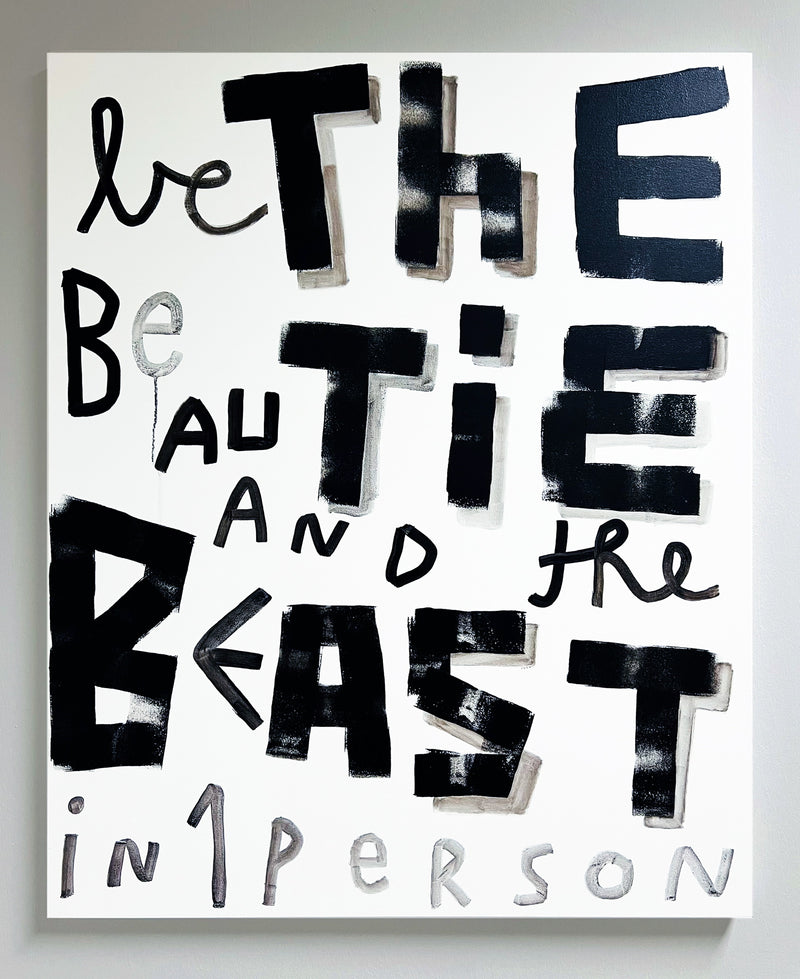 be ThE
Be
AU TiE
AND the
BEAST
in 1 PeRSON